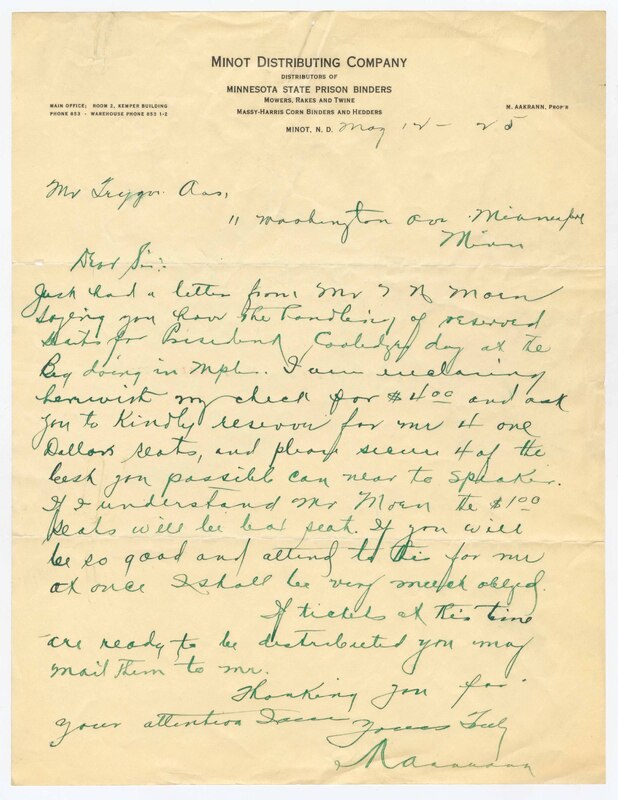 MINOT DISTRIBUTING COMPANY
DISTRIBUTORS OF
MINNESOTA STATE PRISON BINDERS
MOWERS, RAKES AND TWINE
MASSY-HARRIS CORN BINDERS AND HEDDERS
MAIN OFFICE: ROOM 2, KEMPER BUILDING
PHONE 853 - WAREHOUSE PHONE 853 1-2
M. AAKRANN, PROP'R
MINOT, N. D. May 12 - 25
Mr Trygve Aas,
11 Washington Ave Minneapolis
Minn
Dear Sir:
Just had a letter from Mr Moen
saying you have the handling of reserved
seats for President Cooledge day at the
Big doing in Mpls. I am enclosing
herewith my check for $4.00 and ask
you to Kindly reserve for me 4 one
Dollar seats, and please secure 4 of the
best you possible can near to Speaker.
If I understand Mr Moen the $1.00
seats will be best seat. If you will
be so good and attend to this for me
at once I shall be very much obliged.
If tickets at this time
are ready to be distributed you may
mail them to me.
Thanking you for
your attention I am Yours Truly
MAakrann